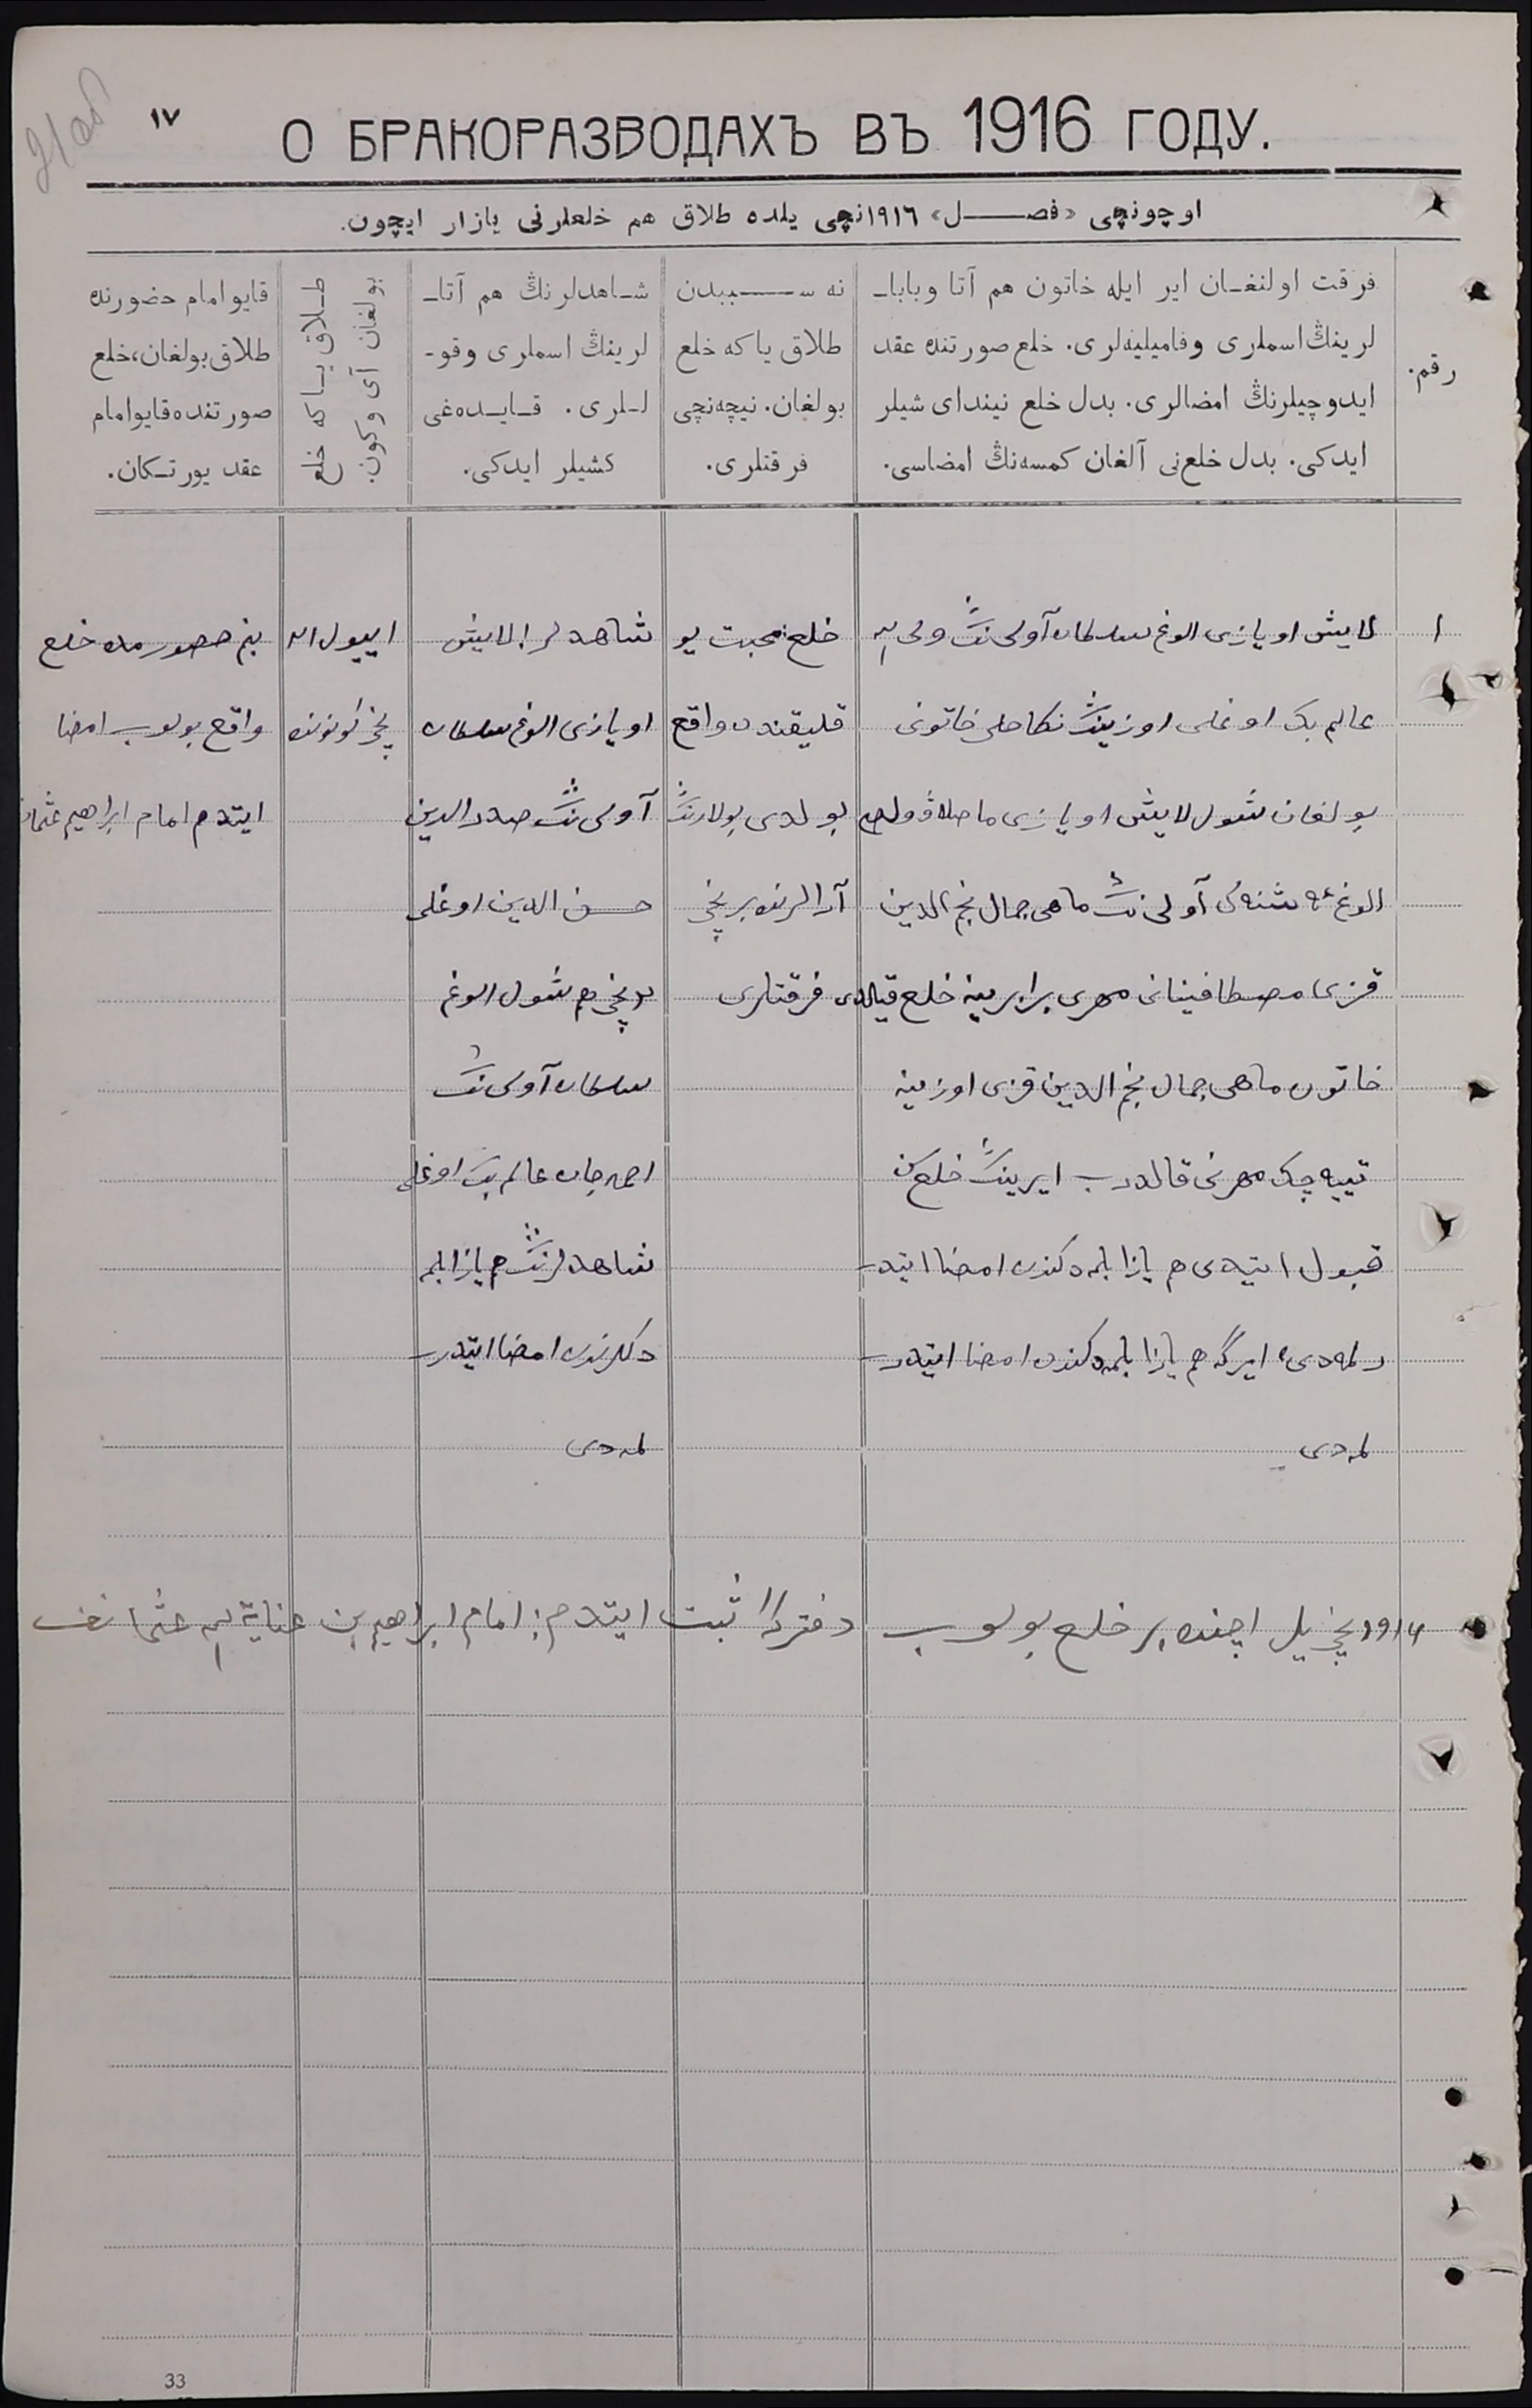 ١٧
О БРАКОРАЗВОДАХЪ ВЪ 1916 ГОДУ.
اوچونچی «فصـــل» ١٩١٦نچی یلده طلاق هم خلعلرنی یازار ایچون.
رقم.
فرقت اولنغـان ایر ایله خاتون هم آتا وبابا‌ـ
لرینڭ اسملری وفامیلیه‌لری. خلع صورتنده عقد
ایدوچیلرنڭ امضالری. بدل خلع نیندای شیلر
ایدکی. بدل خلع‌نی آلغان کمسه‌نڭ امضاسی.
نه ســـببدن
طلاق یا که خلع
بولغان. نیچه‌نچی
فرقتلری.
شـاهدلرنڭ هم آتا‌ـ
لرینڭ اسملری وقو‌ـ
لـلری. قـایـده‌غی
کشیلر ایدکی.
طـلاق یـا که خلع
بولغان آی وکون
قایو امام حضورنده
طلاق بولغان، خلع
صورتنده قایو امام
عقد یورتـکان.
١
لایش اویازی الوغ سلطان آولی ننڭ ولی
عالم بک اوغلی اوزینڭ نکاحلی خاتونی
بولغان شول لایش اویازی
الوغ آولی ننڭ ماهی جمال نجم الدین
قزی مهری برابرینه خلع قیلدی
خاتون ماهی جمال نجم الدین قزی اوزینه
تییه‌چک مهرنی قالدرب ایرینڭ خلع‌ن
قبول ایتدی هم یازا بلمه‌دکندن امضا ایتدر
لمه‌دی ایرگه هم یازا بلمه‌دکندن امضا ایتدر
لمه‌دی
خلع محبت یو
قلیقندن واقع
بولدی بولارنڭ
آرالرنده برنچی
فرقتلری
شاهدلر ١ لایش
اویازی الوغ سلطان
آولی ننڭ صدرالدین
حسن الدین اوغلی
٢ نچی هم شول الوغ
سلطان آولی ننڭ
احمدجان عالم بک اوغلی
شاهدلرنڭ هم یازا بلمه
دکلرندن امضا ایتدر
لمه‌دی
اییول
نچی کوننده
بنم حضورمده خلع
واقع بولوب امضا
ایتدم امام ابراهیم عثمان
١٩١٦ نچی یل اچنده بر خلع بولوب دفترگه ثبت ایتدم: امام ابراهیم بن عنایة عثمانف
33